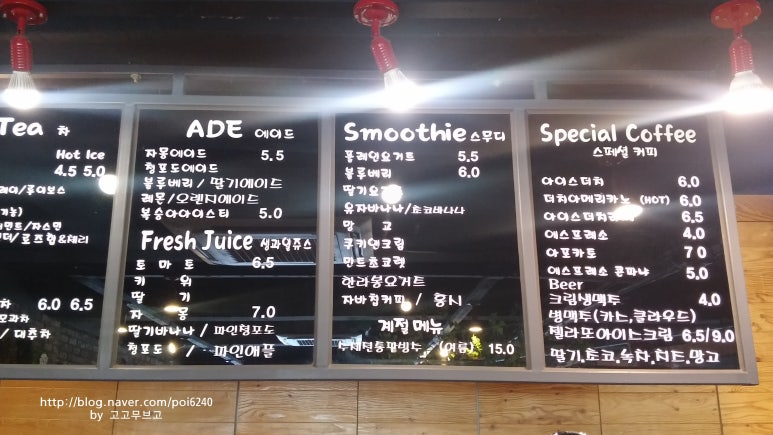 Tea 차
Hot Ice
4.5 5.0
차 6.0 6.5
모과차
/ 대추차
ADE 에이드
자몽에이드 5.5
청포도에이드
블루베리 / 딸기에이드
레몬/오렌지에이드
복숭아아이스티 5.0
Fresh Juice 생과일쥬스
토 마 토 6.5
키 위
딸 기
자 몽 7.0
딸기바나나 / 파인청포도
청포도 / 파인애플
Smoothie 스무디
플레인요거트 5.5
블루베리 6.0
딸기요거트
유자바나나/초코바나나
망 고
쿠키앤크림
민트초코렛
한라봉요거트
자바칩커피 / 홍시
계절메뉴
(여름) 15.0
Special Coffee
스페셜 커피
아이스더치 6.0
더치아메리카노 (HOT) 6.0
아이스더치라떼 6.5
에스프레소 4.0
아포카토 7 0
에스프레소 콘파냐 5.0
Beer
크림생맥주 4.0
병맥주(카스,클라우드)
젤라또아이스크림 6.5/9.0
딸기,초코,녹차,치즈,망고
http://blog.naver.com/poi6240
by 고고무브고